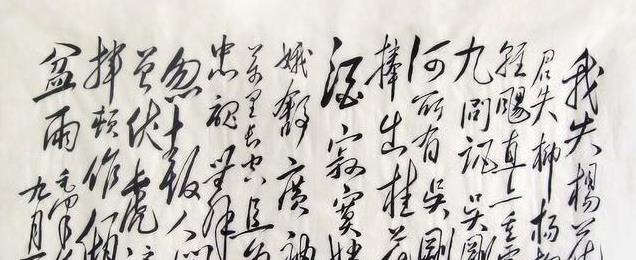 我失楊花
君失柳楊柳
輕颺直上重霄
九問訊吳剛
何所有吳剛
捧出桂花
酒寂寞嫦
娥舒廣袖
萬里長空且為
忠魂舞
忽報人间
曾伏虎淚
飛頓作傾
盆雨
毛澤東
九月